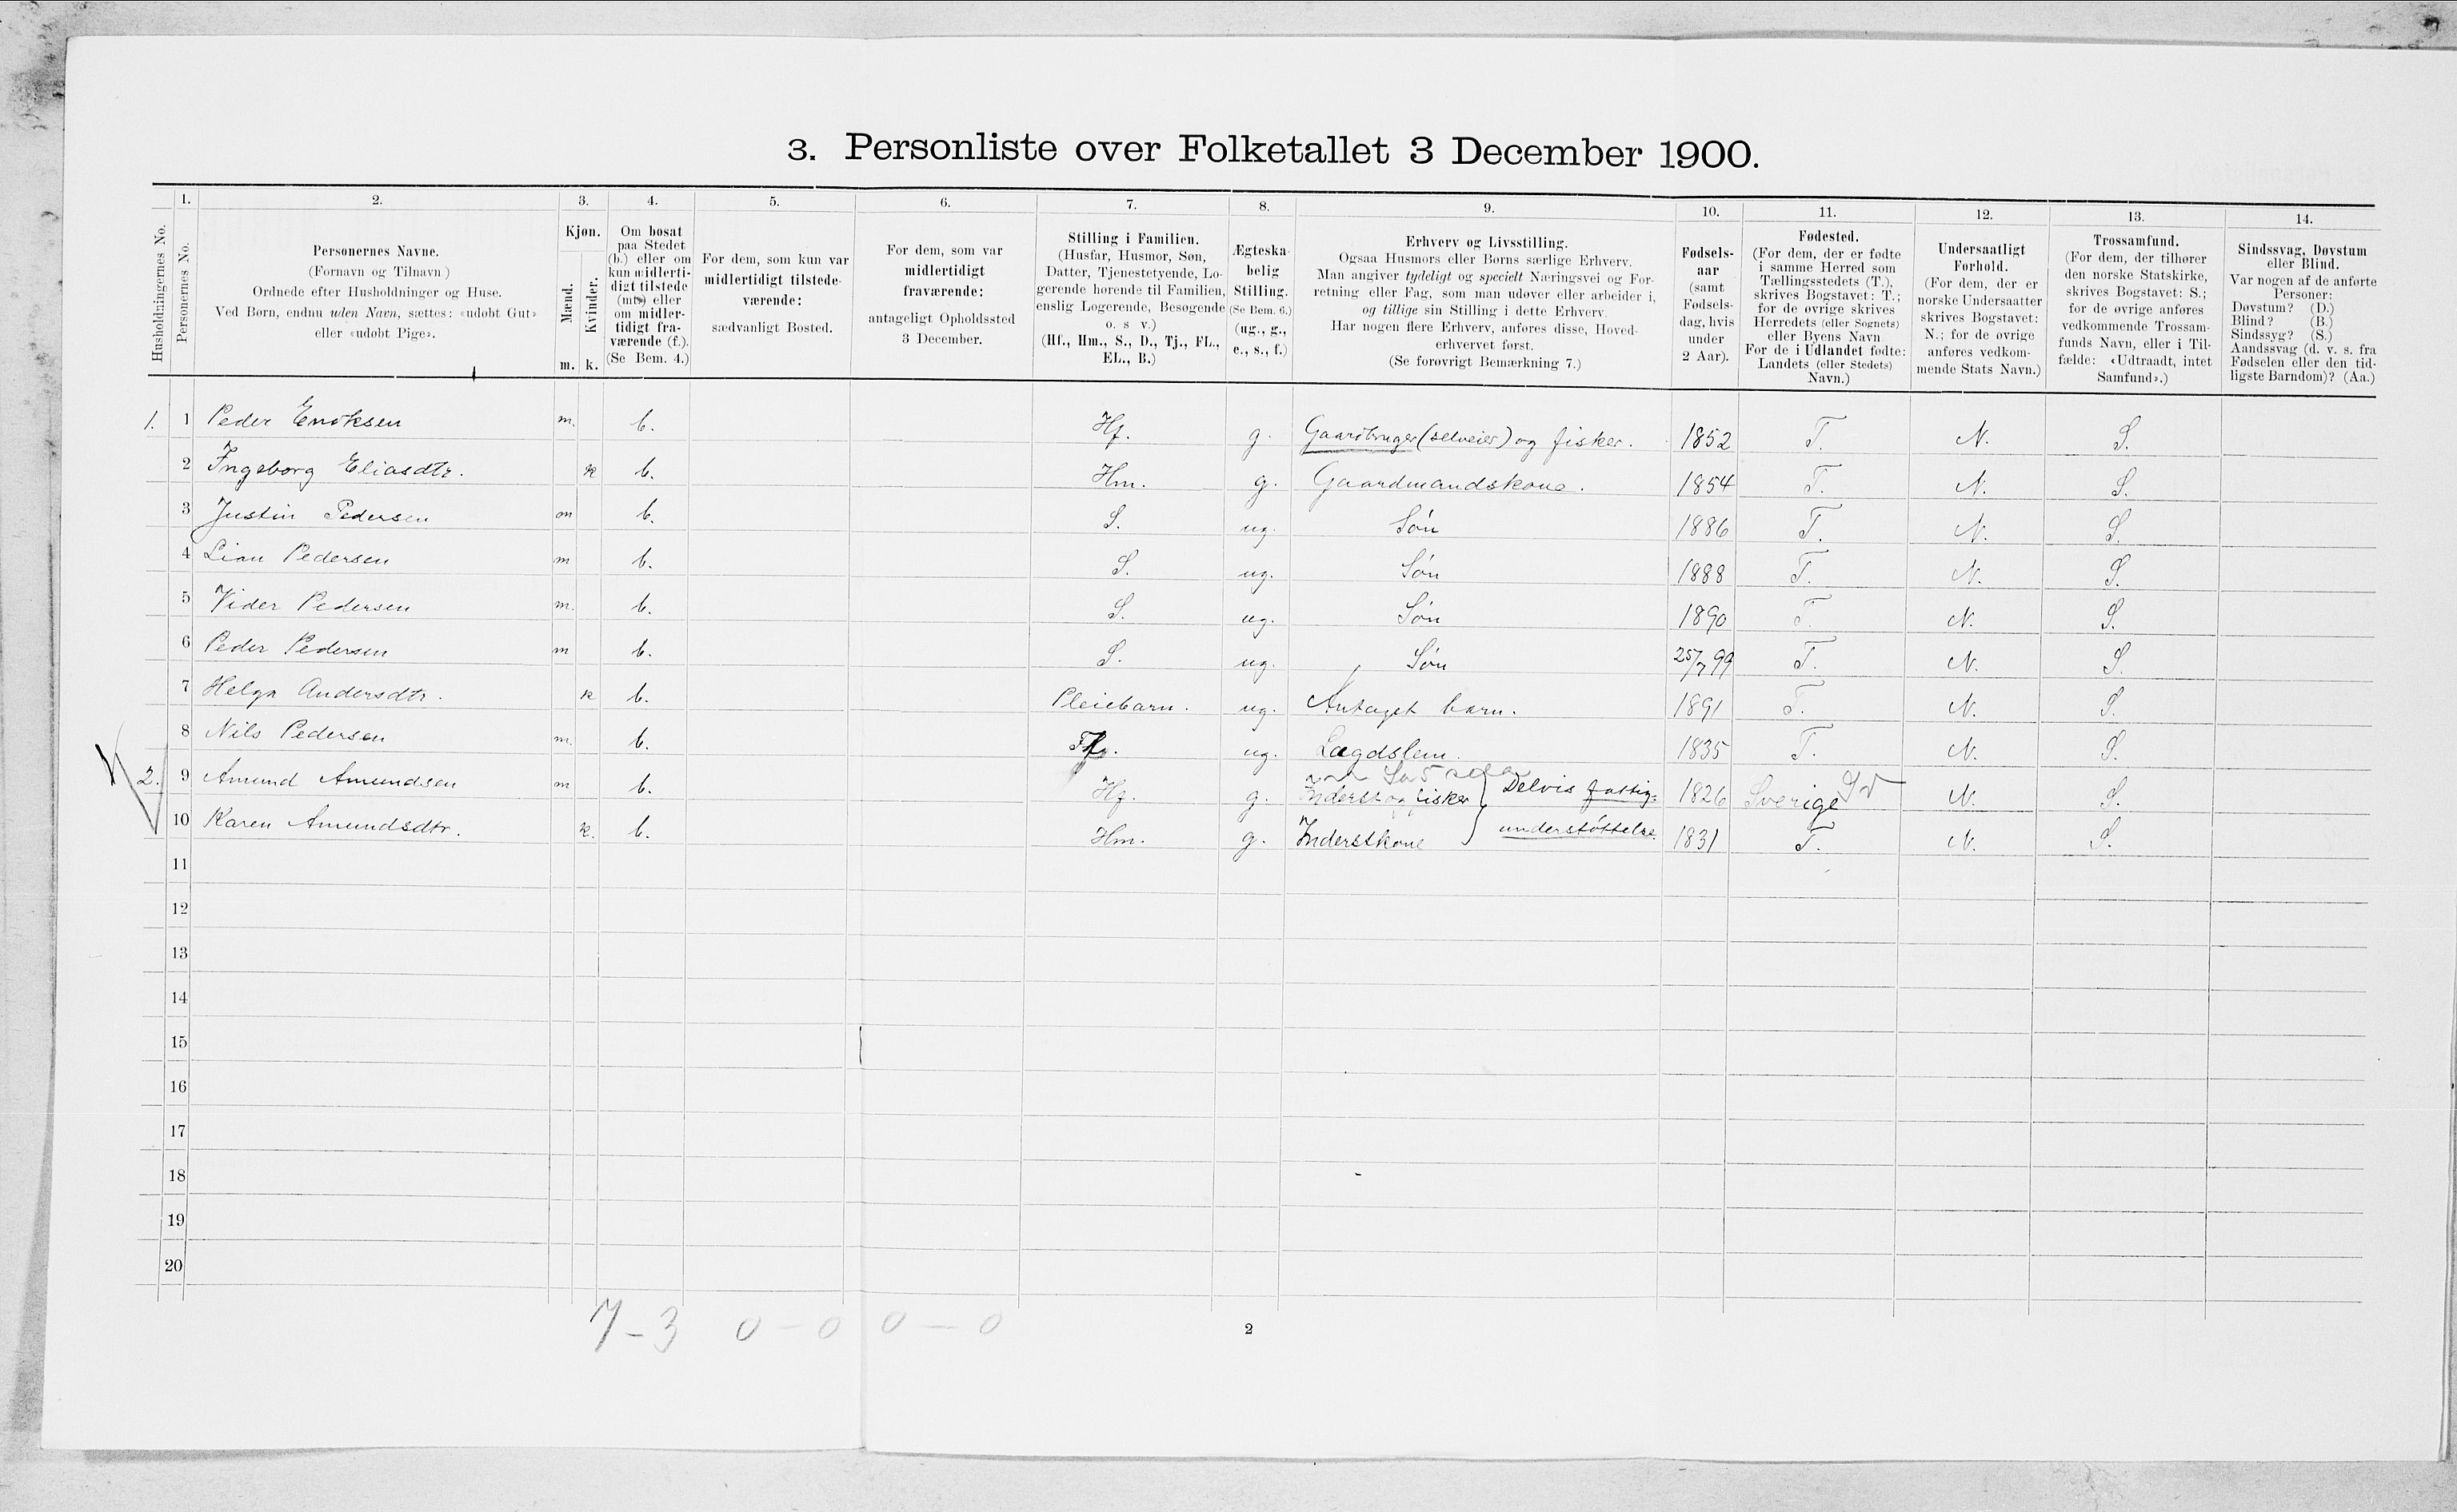 3. Personliste over Folketallet 3 December 1900.
1. 2. 3. 4. 5. 6. 7. 8. 9. 10. 11. 12. 13. 14.
Husholdningernes No.
Personernes No.
Personernes Navne.
(Fornavn og Tilnavn)
Ordnede efter Husholdninger og Huse.
Ved Børn, endnu uden Navn, sættes: «udøbt Gut»
eller «udøbt Pige».
Kjøn.
Mænd.
Kvinder.
m. k.
Om bosat
paa Stedet
(b.) eller om
kun midlerti-
digt tilstede
(mt.) eller
om midler-
tidigt fra-
værende (f.).
(Se Bem. 4.)
For dem, som kun var
midlertidigt tilstede-
værende:
sædvanligt Bosted.
For dem, som var
midlertidigt
fraværende:
antageligt Opholdssted
3 December.
Stilling i Familien.
(Husfar, Husmor, Søn,
Datter, Tjenestetyende, Lo-
gerende hørende til Familien,
enslig Logerende, Besøgende
o. s v.)
(Hf., Hm., S., D., Tj., FL.,
EL., B.)
Ægteska-
belig
Stilling.
(Se Bem. 6.)
(ug., g.,
e., s., f.)
Erhverv og Livsstilling.
Ogsaa Husmors eller Børns særlige Erhverv.
Man angiver tydeligt og specielt Næringsvei og For-
retning eller Fag, som man udøver eller arbeider i,
og tillige sin Stilling i dette Erhverv.
Har nogen flere Erhverv, anføres disse, Hoved-
erhvervet først.
(Se forøvrigt Bemærkning 7.)
Fødsels-
aar
(samt
Fødsels-
dag, hvis
under
2 Aar).
Fødested.
(For dem, der er fødte
i samme Herred som
Tællingsstedets (T.),
skrives Bogstavet: T.;
for de øvrige skrives
Herredets (eller Sognets)
eller Byens Navn
For de i Udlandet fødte:
Landets (eller Stedets)
Navn.)
Undersaatligt
Forhold.
(For dem, der er
norske Undersaatter
skrives Bogstavet:
N.; for de øvrige
anføres vedkom-
mende Stats Navn.)
Trossamfund.
(For dem, der tilhører
den norske Statskirke,
skrives Bogstavet: S.;
for de øvrige anføres
vedkommende Trossam-
funds Navn, eller i Til-
fælde: «Udtraadt, intet
Samfund».)
Sindssvag, Døvstum
eller Blind.
Var nogen af de anførte
Personer:
Døvstum? (D.)
Blind? (B.)
Sindssyg? (S.)
Aandssvag (d. v. s. fra
Fødselen eller den tid-
ligste Barndom)? (Aa.)
1. 1 Peder Enoksen m. b. Hf. g. Gaardbruger (selveier) og fisker. 1852 T. N. S.
2 Ingeborg Eliasdtr. k b. Hm. g. Gaardmandskone. 1854 T. N. S.
3 Justin Pedersen m b. S. ug. Søn 1886 T. N. S.
4 Lian Pedersen m b. S. ug. Søn 1888 T. N. S.
5 Vider Pedersen m. b. S. ug. Søn 1890 T. N. S.
6 Peder Pedersen m b. S. ug. Søn 25/7 99 T. N. S.
7 Helga Andersdtr. k b. Pleiebarn. ug. Antaget barn. 1891 T. N. S.
8 Nils Pedersen m. b. ug. Lægdslem. 1835 T. N. S.
2. 9 Amund Amundsen m b. Hf. g. Inderst og fisker } Delvis fattig- 1826 Sverige N. S.
10 Karen Amundsdtr. k. b. Hm. g. Inderstkone understøttelse. 1831 T. N. S.
11
12
13
14
15
16
17
18
19
20
7-3 0-0 0-0
2